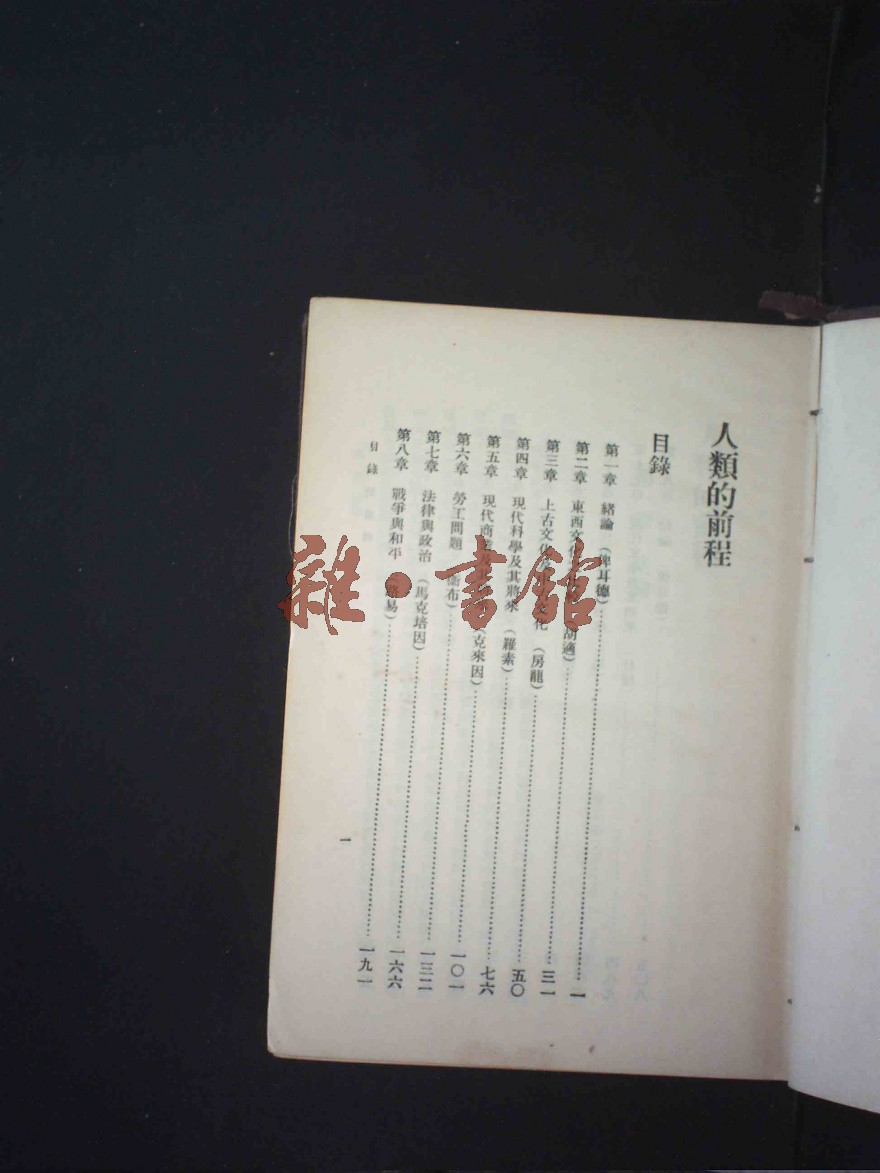 人類的前程
目錄
第一章 緒論 (俾耳德)……一
第二章 東西文化 胡適)……三一
第三章 上古文化 文化 (房龍)……五〇
第四章 現代科學及其將來 (羅素)……七六
第五章 現代商業及其 (克來因)……一〇一
第六章 勞工問題 衞布)……一三二
第七章 法律與政治 (馬克培因)……一六六
第八章 戰爭與和平 路易)……一九一
目錄
一
雜·書館